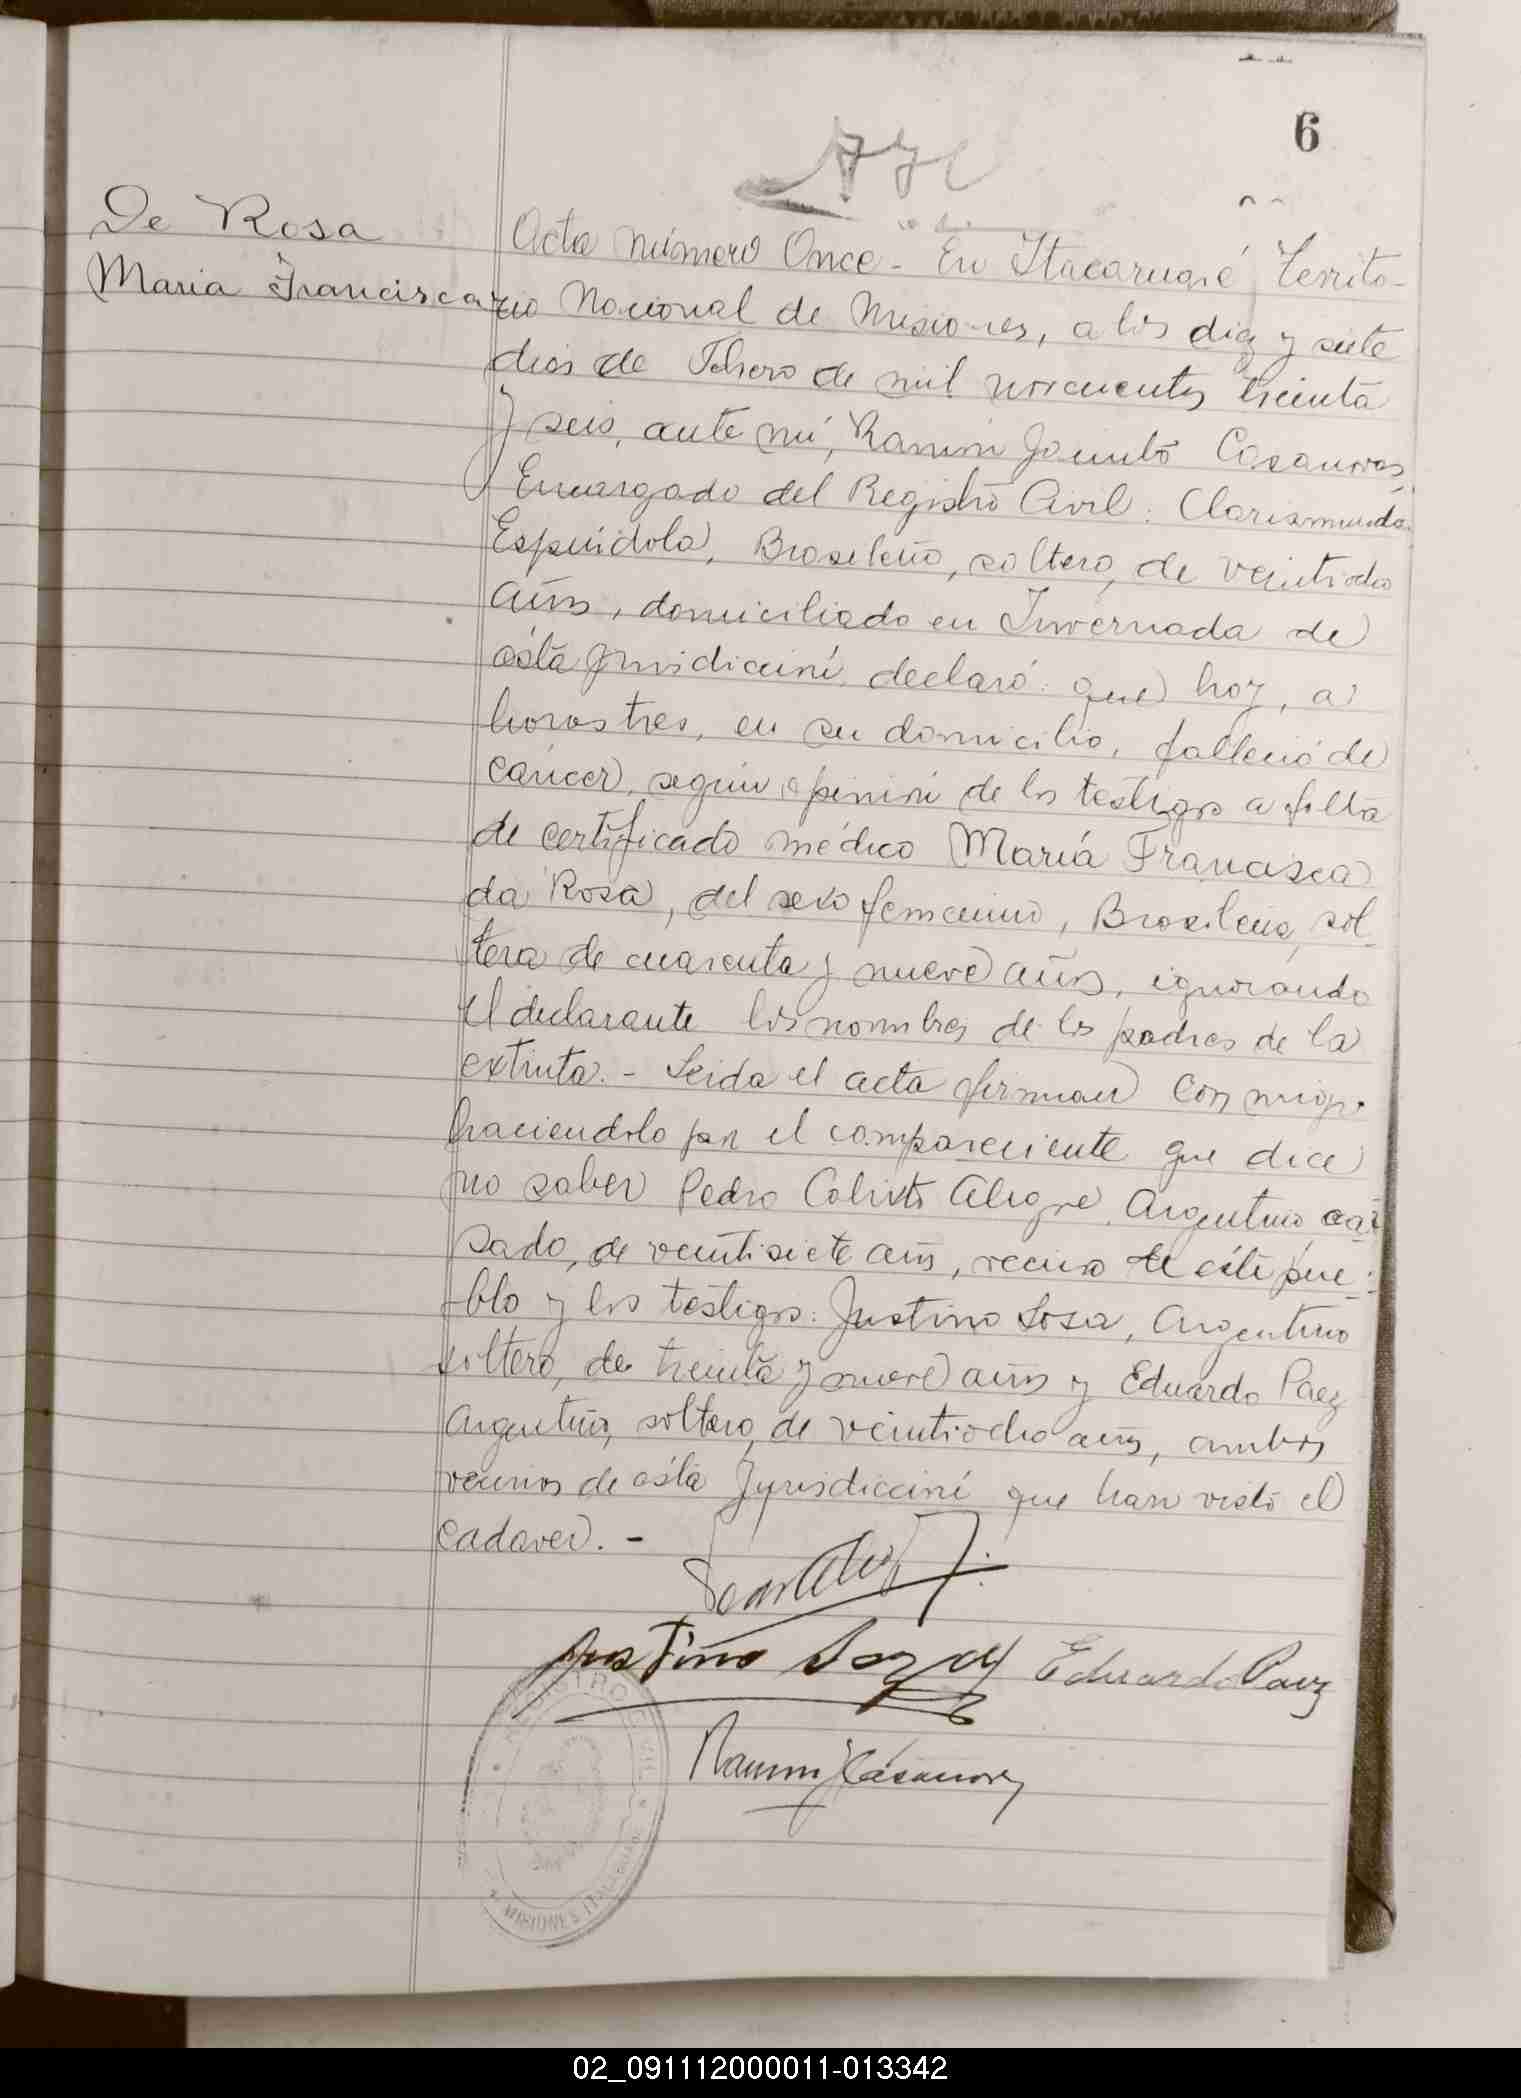 6
De Rosa
Maria Francisca
Acta número Once - En Itacaruaré Territo-
rio Nacional de Misiones, a los diez y siete
dias de Febrero de mil novecientos treinta
y seis, ante mí, Ramón Jacinto Casanovas,
Encargado del Registro Civil: Clarismundo
Espíndola, Brasileño, soltero, de veintiocho
años, domiciliado en Invernada de
ésta jurisdicción, declaró: que hoy, a
horas tres, en su domicilio, falleció de
cáncer, según opinión de los testigos a falta
de certificado médico María Francisca
da Rosa, del sexo femenino, Brasileña, sol-
tera de cuarenta y nueve años, ignorando
el declarante los nombres de los padres de la
extinta. - Leida el acta firman conmigo,
haciendolo por el compareciente que dice
no saber Pedro Calixto Alegre, Argentino, ca-
sado, de veintisiete años, vecino de éste pue-
blo y los testigos: Justino Sosa, Argentino
soltero, de treinta y nueve años y Eduardo Paez
Argentino, soltero, de veintiocho años, ambos
vecinos de ésta Jurisdicción que han visto el
cadaver. -
Justino Soza Eduardo Paez
Ramón J Casanovas
REGISTRO CIVIL
MISIONES ITACARUARE
02_091112000011-013342